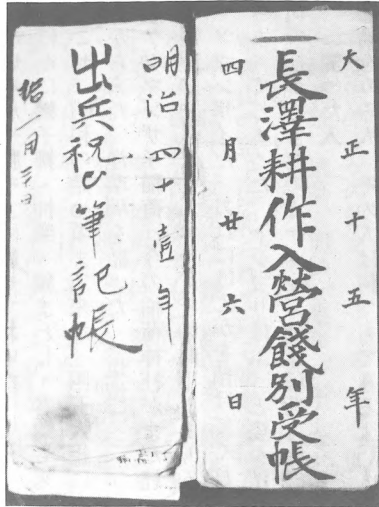 大正十五年
長澤耕作入營餞別受帳
四月廿六日
明治四十壹年
出兵祝ひ筆記帳
一月三日